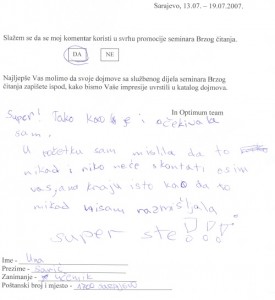 Sarajevo, 13.07. – 19.07.2007.
Slažem se da se moj komentar koristi u svrhu promocije seminara Brzog čitanja.
DA NE
Najljepše Vas molimo da svoje dojmove sa službenog dijela seminara Brzog
čitanja zapišete ispod, kako bismo Vaše impresije uvrstili u katalog dojmova.
In Optimum team
Super! Tako kao što je i očekivala
sam.
U početku sam mislila da to
nikad niko neće skontati osim
vas, a na kraju isto kao da to
nikad nisam razmišljala
super ste!!!
Ime -
Prezime -
Zanimanje - učenik
Poštanski broj i mjesto -